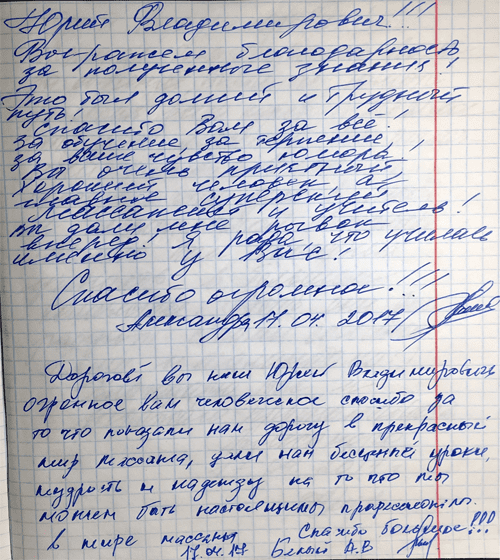 Юрий Владимирович!!!
Выражаем благодарность
за полученные знания!
Это был долгий и трудный
путь!
Спасибо Вам за всё!
За обучение, за терпение,
за ваше чувство юмора!
Вы очень приятный,
хороший человек, а
главное суперский
массажист и учитель!
Вы дали мне рывок
вперёд! Я рада, что училась
именно у Вас!
Спасибо огромное!!!
Александра 17.04.2017
Дорогой вы наш Юрий Владимирович
огромное вам человеческое спасибо за
то что показали нам дорогу в прекрасный
мир массажа, дали нам бесценные уроки,
мудрость и надежду на то что мы
можем быть настоящими профессионалами
в мире массажа Спасибо большое!!!
17.04.17 Белый А.В